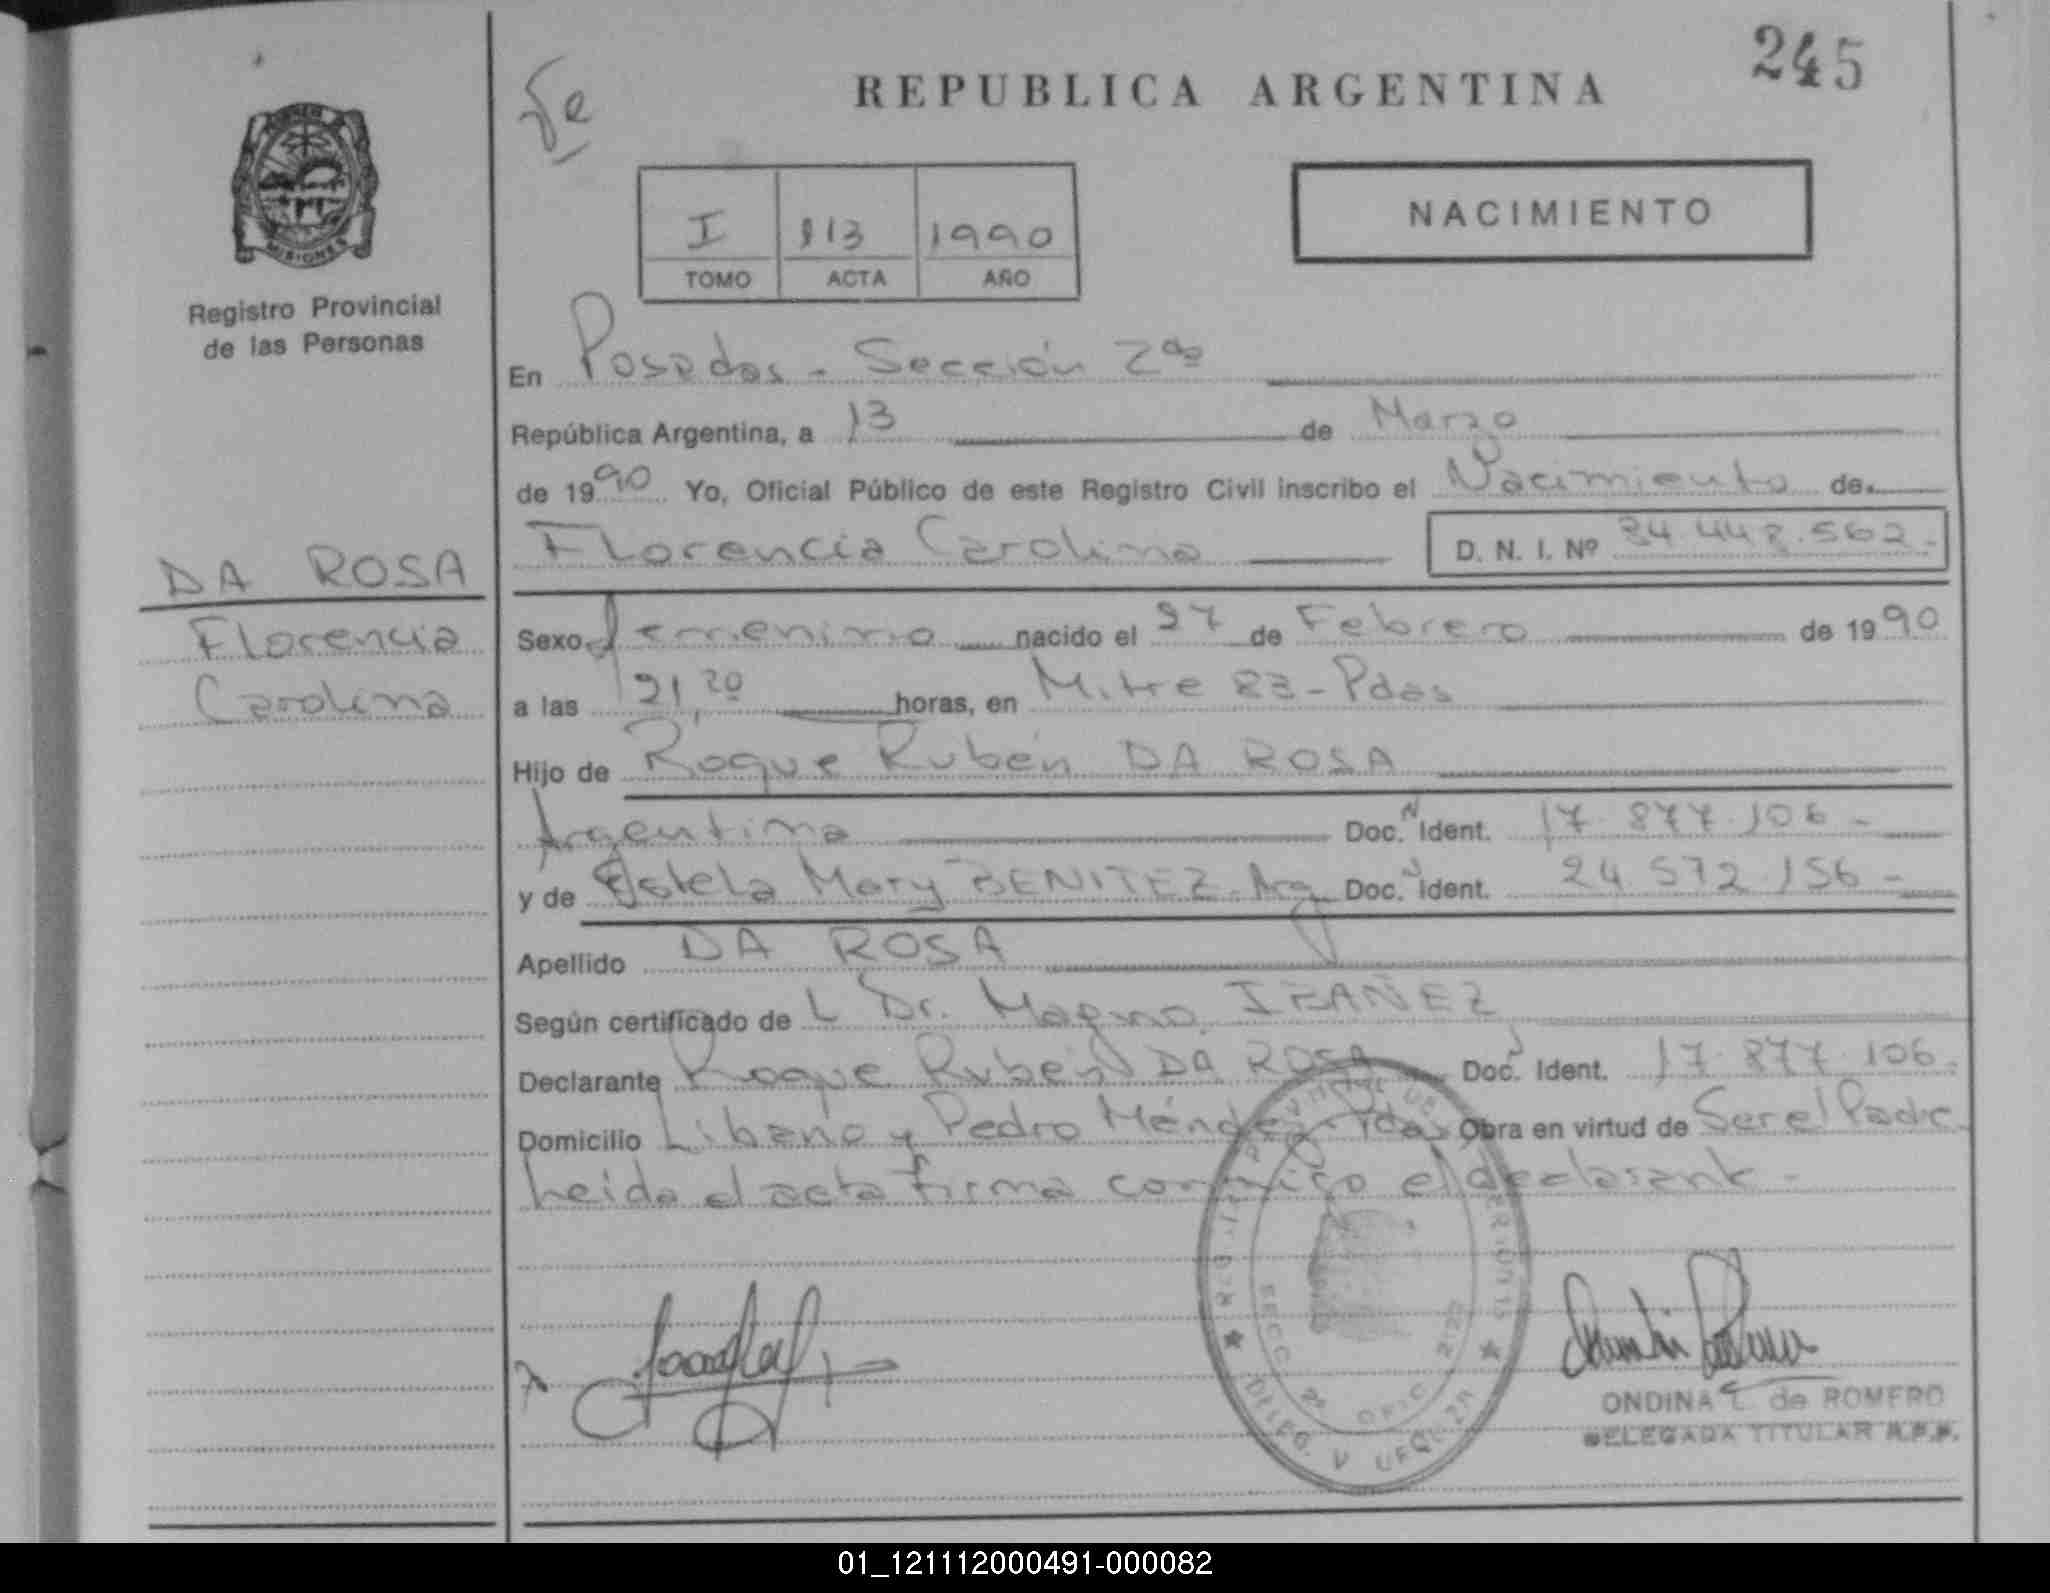 245
REPUBLICA ARGENTINA
MISIONES
Registro Provincial
de las Personas
I 113 1990
TOMO ACTA AÑO
NACIMIENTO
En Posadas - Sección 2da
República Argentina, a 13 de Marzo
de 1990 Yo, Oficial Público de este Registro Civil inscribo el Nacimiento de
Florencia Carolina D. N. I. Nº 34.448.562.-
DA ROSA
Florencia
Carolina
Sexo femenino nacido el 27 de Febrero de 1990
a las 21,20 horas, en Mitre 83 - Pdas
Hijo de Roque Rubén DA ROSA
Argentina Doc. N Ident. 17.877.106-
y de Estela Mary BENITEZ - Arg Doc. N Ident. 24.572.156-
Apellido DA ROSA
Según certificado de L Dr. Magno IBAÑEZ
Declarante Roque Rubén DA ROSA Doc. Ident. 17.877.106.
Domicilio Libano y Pedro Méndez - Pdas Obra en virtud de Ser el Padre
Leida el acta firma conmigo el declarante -
SECC. 2º OFIC.
DELEG. V URQUIZA
ONDINA L. de ROMERO
DELEGADA TITULAR R.P.P.
01_121112000491-000082